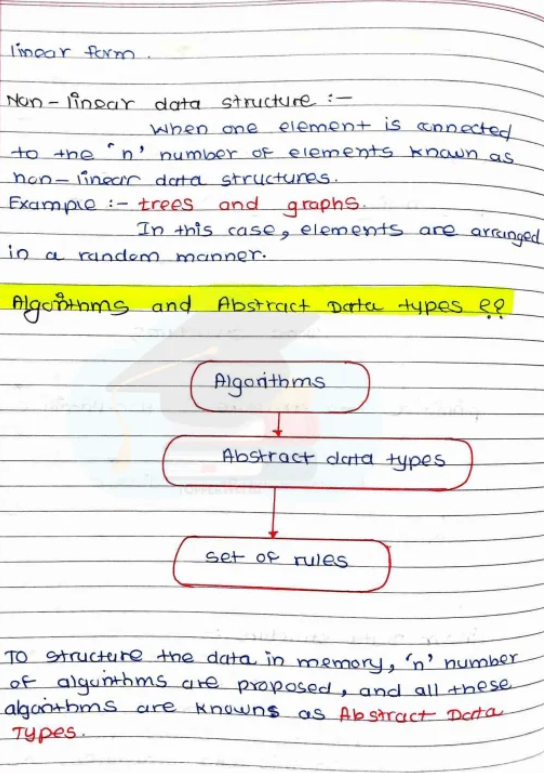 linear form.
Non-linear data structure :-
When one element is connected
to the 'n' number of elements known as
non-linear data structures.
Example :- trees and graphs.
In this case, elements are arranged
in a random manner.
Algorithms and Abstract Data types ??
Algorithms
Abstract data types
set of rules
To structure the data in memory, 'n' number
of algorithms are proposed, and all these
algorithms are knowns as Abstract Data
Types.